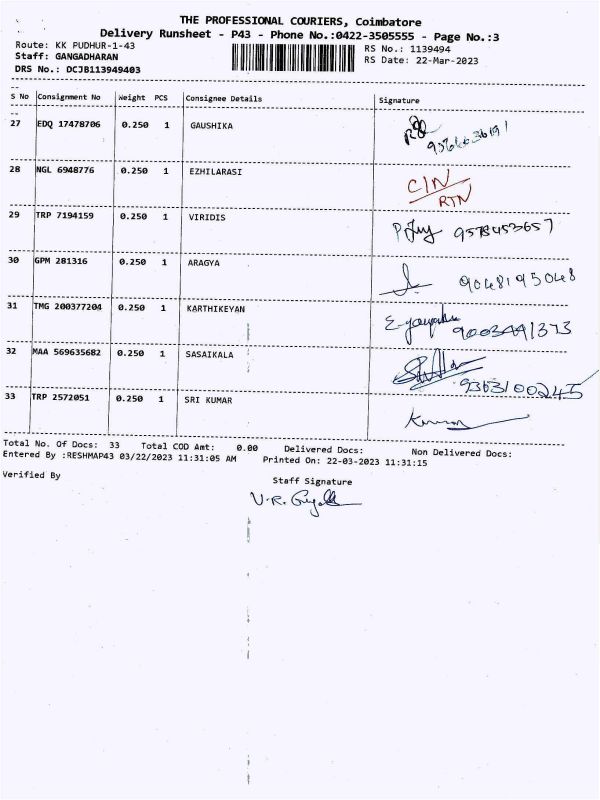 THE PROFESSIONAL COURIERS, Coimbatore
Delivery Runsheet - P43 - Phone No.:0422-3505555 - Page No.:3
Route: KK PUDHUR-1-43 RS No.: 1139494
Staff: GANGADHARAN RS Date: 22-Mar-2023
DRS No.: DCJB113949403
S No Consignment No Weight PCS Consignee Details Signature
27 EDQ 17478706 0.250 1 GAUSHIKA
28 NGL 6948776 0.250 1 EZHILARASI C/N
RTN
29 TRP 7194159 0.250 1 VIRIDIS 9578453657
30 GPM 281316 0.250 1 ARAGYA 9048195048
31 TMG 200377204 0.250 1 KARTHIKEYAN 9003441373
32 MAA 569635682 0.250 1 SASAIKALA 9363100245
33 TRP 2572051 0.250 1 SRI KUMAR Kumar
Total No. Of Docs: 33 Total COD Amt: 0.00 Delivered Docs: Non Delivered Docs:
Entered By :RESHMAP43 03/22/2023 11:31:05 AM Printed On: 22-03-2023 11:31:15
Verified By Staff Signature